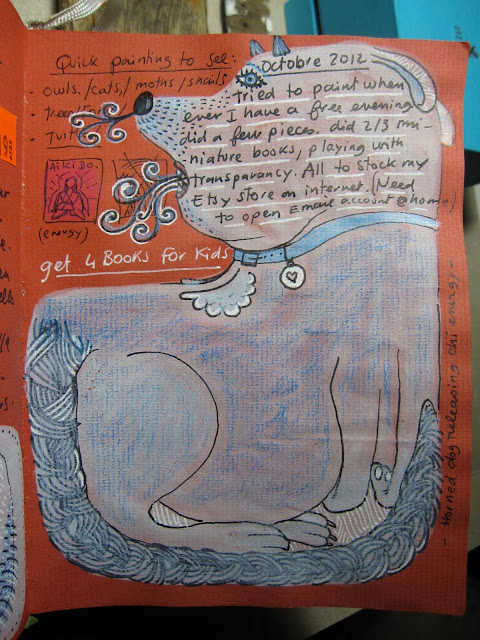 Quick painting to sell:
- owls./cats,/ moths/snails
Octobre 2012
Tried to paint when
ever I have a free evening
did a few pieces. did 2/3 mi-
niature books, playing with
transparancy. All to stock my
Etsy store on internet. (Need
to open Email account @home)
AiKiDo.
(energy)
get 4 Books for Kids
- Horned dog releasing chi energy -